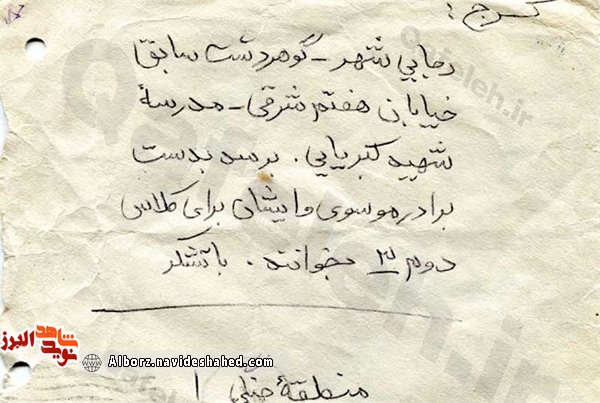 کرج:
رجایی شهر - گوهردشت سابق
خیابان هفتم شرقی - مدرسهٔ
شهید کبریایی. برسد بدست
برادر موسوی و ایشان برای کلاس
دوم ۳ بخوانند. با تشکر
منطقهٔ جنگی ۱
نوید شاهد البرز
Alborz.navideshahed.com
Qafeleh.ir